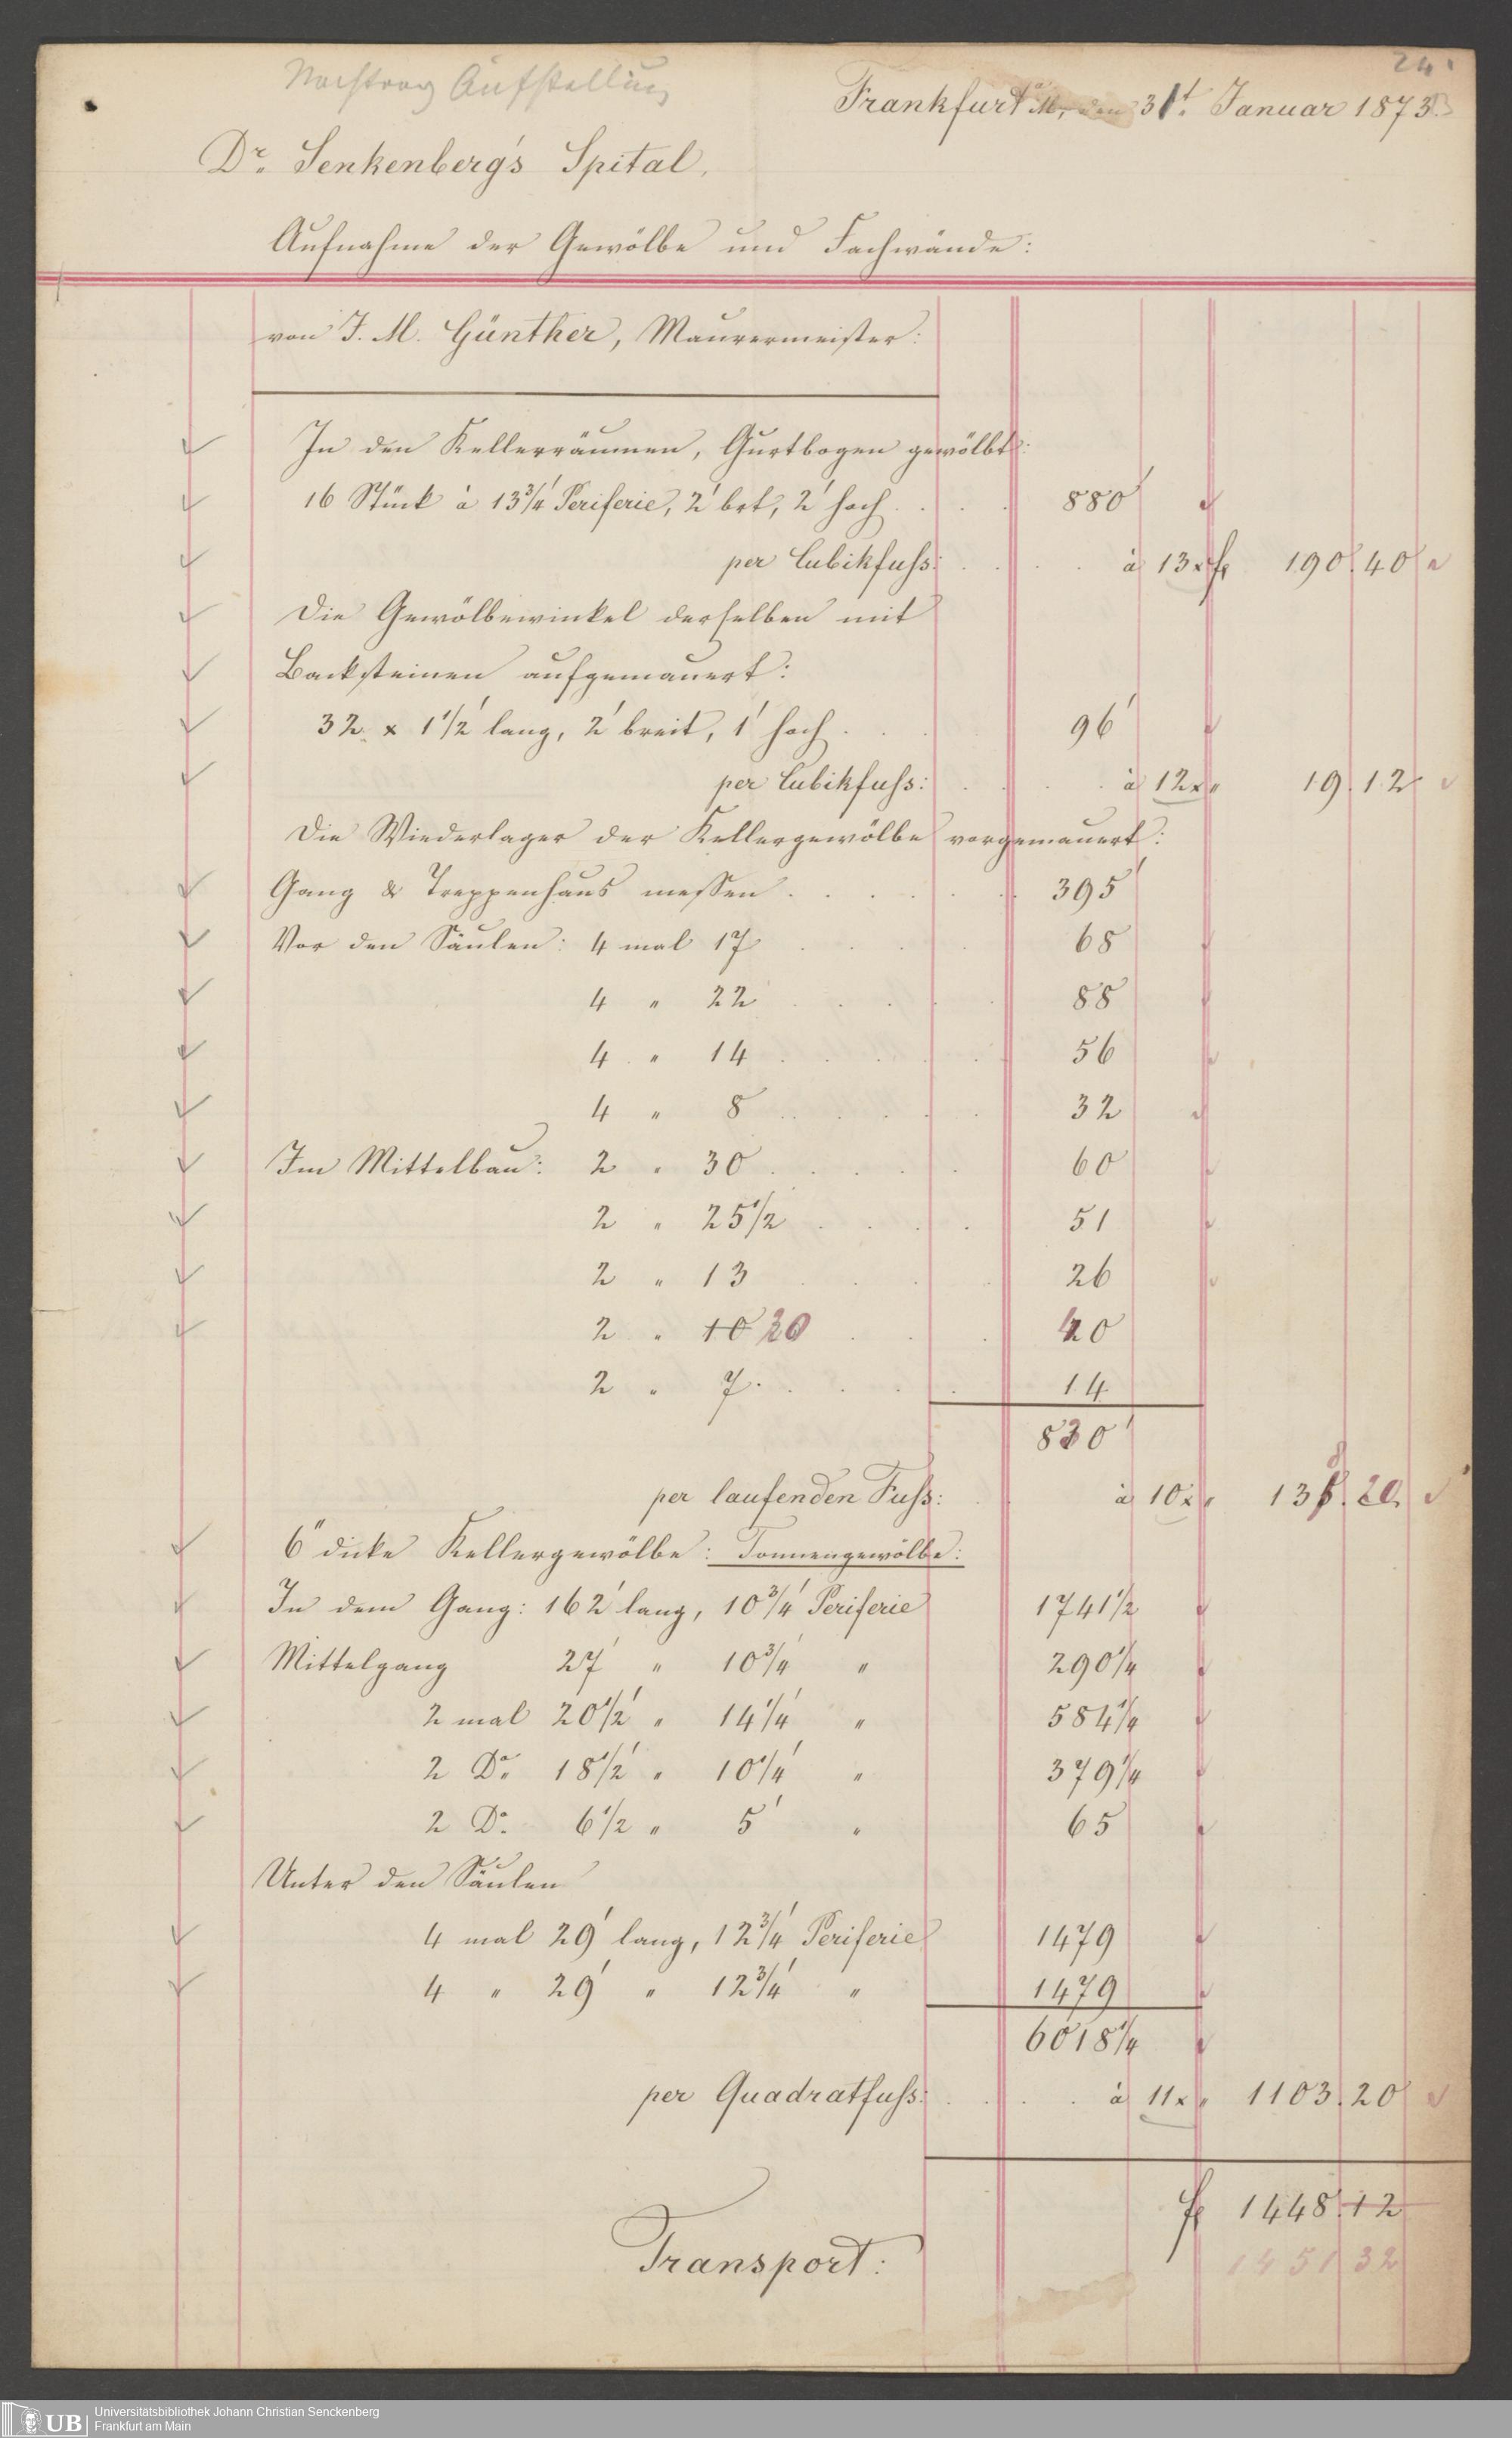 24.
Nachtrag Aufstellung
Frankfurt a/M, den 31t. Januar 1873.
Dr. Senkenberg's Spital,
Aufnahme der Gewölbe und Fachwände:
von J. M. Günther, Maurermeister:
In den Kellerräumen, Gurtbogen gewölbt:
16 Stück à 13 3/4' Periferie, 2' brt, 2' hoch . . . 880'
per Cubikfuss: . . . à 13 x f 190. 40
Die Gewölbewinkel derselben mit
Backsteinen aufgemauert:
32 x 1 1/2' lang, 2' breit, 1' hoch . . 96'
per Cubikfuss: . . . à 12 x " 19. 12
Die Wiederlager der Kellergewölbe vorgemauert:
Gang & Treppenhaus messen . . . . 395'
Vor den Säulen: 4 mal 17 . . . . 68
4 " 22 . . . . 88
4 " 14 . . . . 56
4 " 8 . . . . 32
Im Mittelbau: 2 " 30 . . . . 60
2 " 25 1/2 . . . . 51
2 " 13 . . . 26
2 " 10 20 . . . 40
2 " 7 . . . . 14
830'
per laufenden Fuss: . . à 10 x " 138. 20.
6" dicke Kellergewölbe: Tonnengewölbe:
In dem Gang: 162' lang, 10 3/4' Periferie 1741 1/2
Mittelgang 27' " 10 3/4' " 290 1/4
2 mal 20 1/2' " 14 1/4' " 584 1/4
2 Do. 18 1/2' " 10 1/4' " 379 1/4
2 Do. 6 1/2 " 5' " 65
Unter den Säulen
4 mal 29' lang, 12 3/4' Periferie 1479
4 " 29' " 12 3/4' " 1479
6018 1/4
per Quadratfuss: . . . . à 11 x " 1103. 20
f 1448. 12
Transport:
1451 32
UB
Universitätsbibliothek Johann Christian Senckenberg
Frankfurt am Main